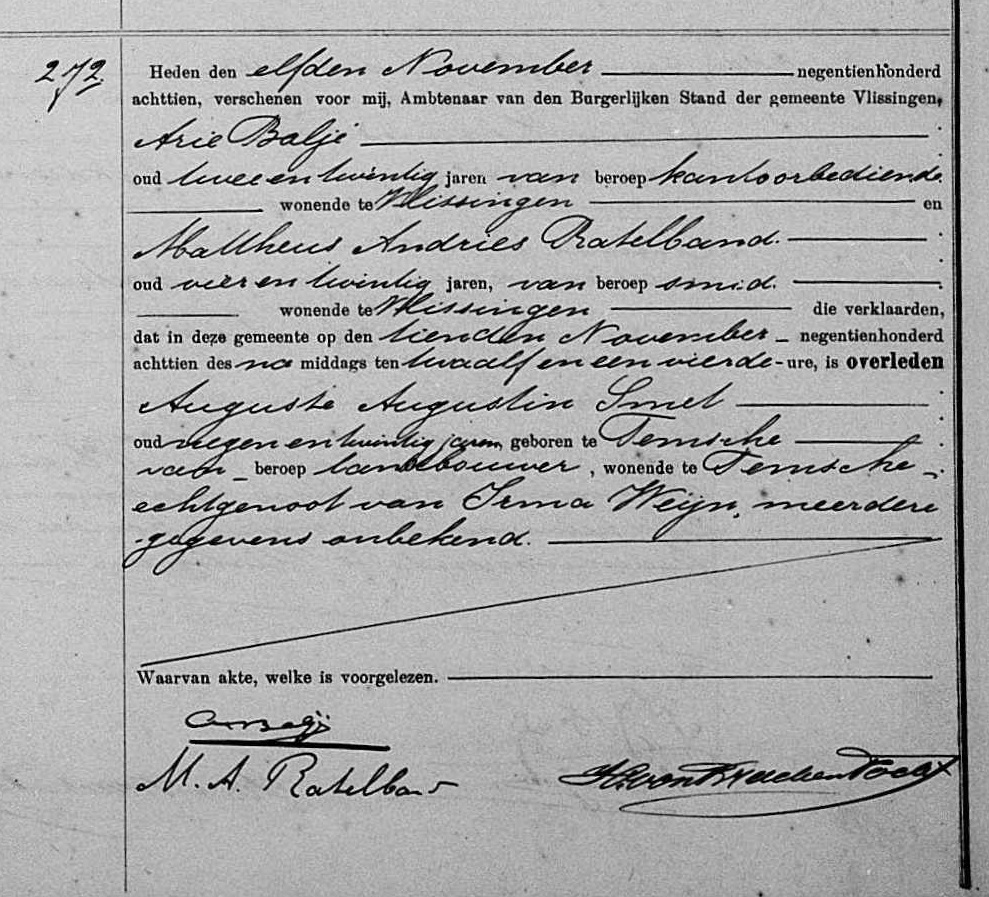 272.
Heden den elfden November negentienhonderd
achttien, verschenen voor mij, Ambtenaar van den Burgerlijken Stand der gemeente Vlissingen,
Arie Balje
oud twee en twintig jaren van beroep kantoorbediende
wonende te Vlissingen en
Mattheus Andries Ratelband.
oud vier en twintig jaren, van beroep smid.
wonende te Vlissingen die verklaarden,
dat in deze gemeente op den tienden November negentienhonderd
achttien des na middags ten twaalf en een vierde ure, is overleden
Auguste Augustin Smet
oud negen en twintig jaren, geboren te Temsche
van beroep landbouwer, wonende te Temsche
echtgenoot van Irma Weijn, meerdere
gegevens onbekend.
Waarvan akte, welke is voorgelezen.
M. A. Ratelband